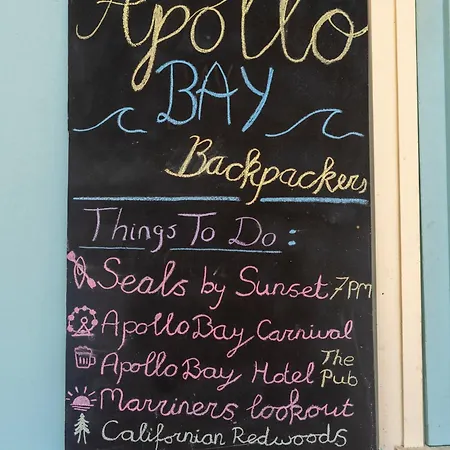 Apollo
BAY
Backpackers
Things To Do :
Seals by Sunset 7PM
Apollo Bay Carnival
Apollo Bay Hotel The Pub
Marriners lookout
Californian Redwoods